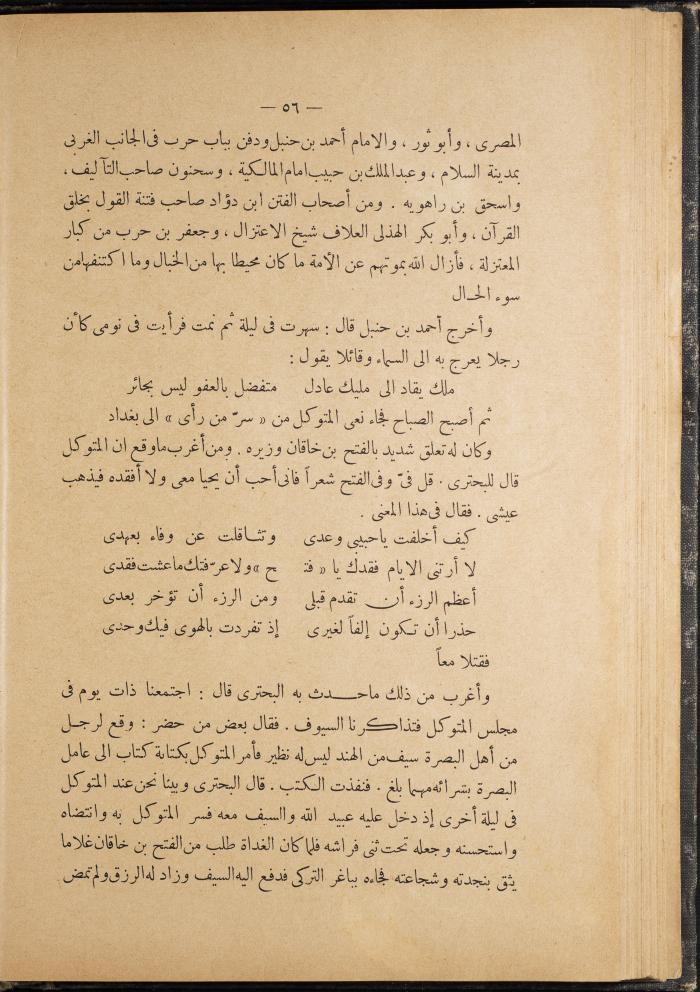 — ٥٦ —
المصرى ، وأبو ثور ، والامام أحمد بن حنبل ودفن بباب حرب فى الجانب الغربى
بمدينة السلام ، وعبد الملك بن حبيب امام المالكية ، وسحنون صاحب التآليف ،
واسحق بن راهويه . ومن أصحاب الفتن ابن دؤاد صاحب فتنة القول بخلق
القرآن ، وأبو بكر الهذلى العلاف شيخ الاعتزال ، وجعفر بن حرب من كبار
المعتزلة ، فأزال الله بموتهم عن الأمة ما كان محيطا بها من الخبال وما اكتنفها من
سوء الحال
وأخرج أحمد بن حنبل قال : سهرت فى ليلة ثم نمت فرأيت فى نومى كأن
رجلا يعرج به الى السماء وقائلا يقول :
ملك يقاد الى مليك عادل متفضل بالعفو ليس بجائر
ثم أصبح الصباح فجاء نعى المتوكل من « سرّ من رأى » الى بغداد
وكان له تعلق شديد بالفتح بن خاقان وزيره . ومن أغرب ما وقع ان المتوكل
قال للبحترى . قل فىّ وفى الفتح شعراً فانى أحب أن يحيا معى ولا أفقده فيذهب
عيشى . فقال فى هذا المعنى .
كيف أخلفت يا حبيبى وعدى وتثاقلت عن وفاء بعهدى
لا أرتنى الايام فقدك يا « فتـ ـح » ولا عرّفتك ما عشت فقدى
أعظم الرزء أن تقدم قبلى ومن الرزء أن تؤخر بعدى
حذرا أن تكون إلفاً لغيرى إذ تفردت بالهوى فيك وحدى
فقتلا معاً
وأغرب من ذلك ماحدث به البحترى قال : اجتمعنا ذات يوم فى
مجلس المتوكل فتذاكرنا السيوف . فقال بعض من حضر : وقع لرجل
من أهل البصرة سيف من الهند ليس له نظير فأمر المتوكل بكتابة كتاب الى عامل
البصرة بشرائه مهما بلغ . فنفذت الكتب . قال البحترى وبينا نحن عند المتوكل
فى ليلة أخرى إذ دخل عليه عبيد الله والسيف معه فسر المتوكل به وانتضاه
واستحسنه وجعله تحت ثنى فراشه فلما كان الغداة طلب من الفتح بن خاقان غلاما
يثق بنجدته وشجاعته فجاءه بباغر التركى فدفع اليه السيف وزاد له الرزق ولم تمض